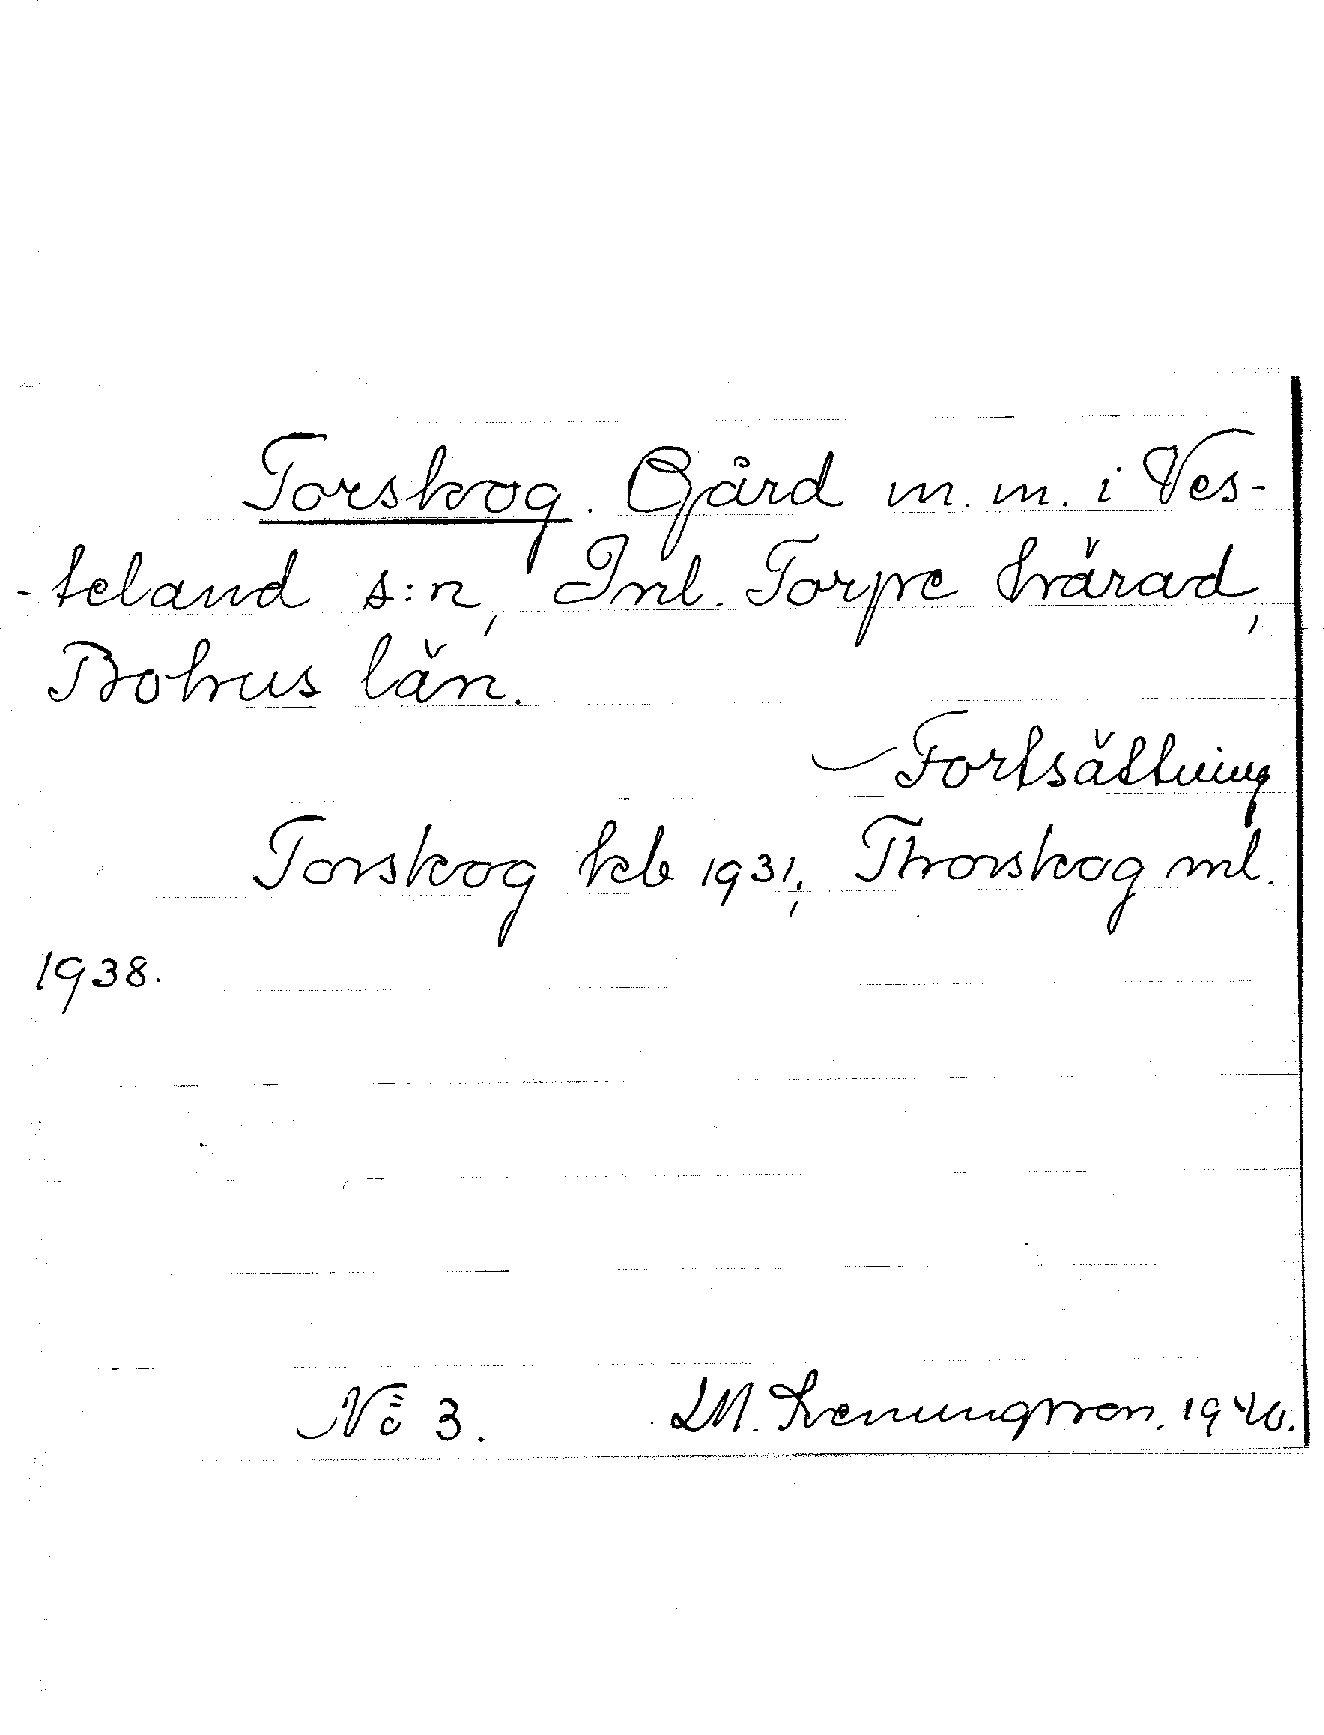 Torskog. Gård m. m. i Ves-
-teland s:n, Inl. Torpe härad,
Bohus län.
Fortsättning
Torskog kb 1931; Thorskog ml.
1938.
No 3. LM. Svenungsson. 1940.